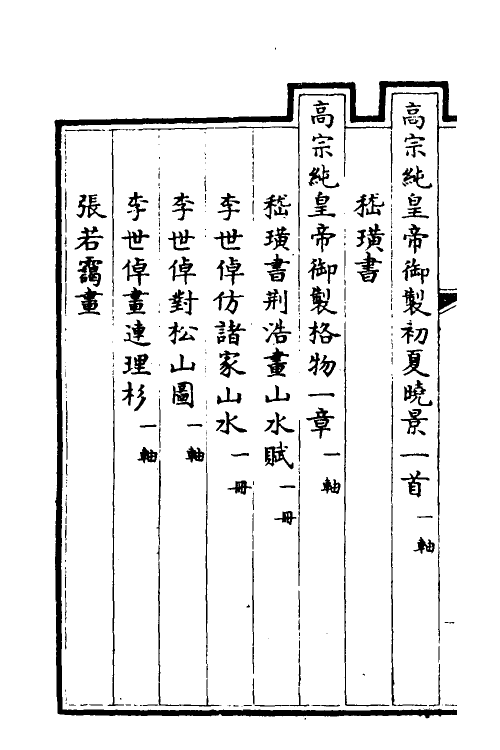 高宗純皇帝御製初夏曉景一首一軸
嵇璜書
高宗純皇帝御製格物一章一軸
嵇璜書荆浩畫山水賦一冊
李世倬仿諸家山水一冊
李世倬對松山圖一軸
李世倬畫連理杉一軸
張若靄畫